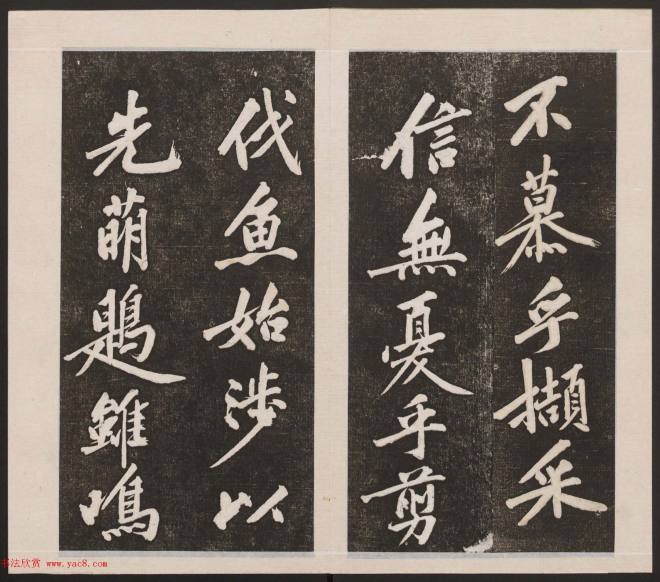 不慕乎擷采
信無憂乎剪
伐魚始涉以
先萌鶗雖鳴
书法欣赏 www.yac8.com